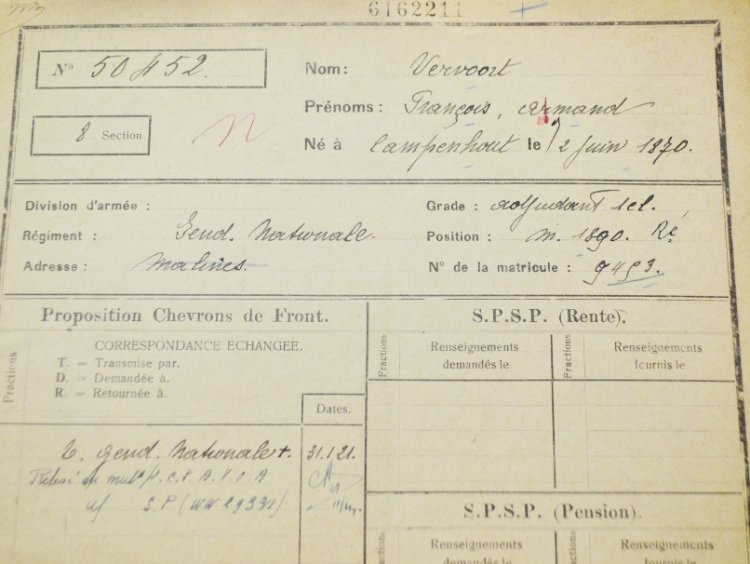 6162211
N° 50452.
8 Section
n
Nom: Vervoort
Prénoms: François, Armand
Né à Campenhout le 2 Juin 1870.
Division d'armée :
Régiment : Gend. Nationale.
Adresse : Malines.
Grade : adjudant 1 cl.
Position : m. 1890. Ré
N° de la matricule : 9453.
Proposition Chevrons de Front.
CORRESPONDANCE ÉCHANGÉE.
T. = Transmise par.
D. = Demandée à.
R. = Retournée à.
Fractions
Dates.
T. gend. Nationale +. 31.1.21.
P. C. P. A. V. O A
S. P (WW 29331)
S.P.S.P. (Rente).
Fractions
Renseignements
demandés le
Fractions
Renseignements
fournis le
S.P.S.P. (Pension).
Renseignements
Renseignements